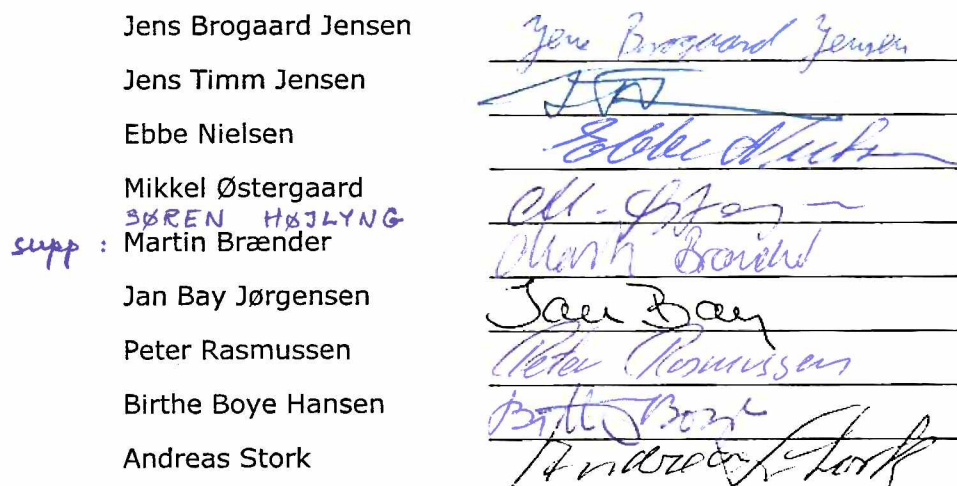 Jens Brogaard Jensen Jens Brogaard Jensen
Jens Timm Jensen
Ebbe Nielsen Ebbe Nielsen
Mikkel Østergaard M. Østerg
SØREN HØJLYNG
supp : Martin Brænder Martin Brænder
Jan Bay Jørgensen Jan Bay
Peter Rasmussen Peter Rasmussen
Birthe Boye Hansen Birthe Boye
Andreas Stork Andreas Stork